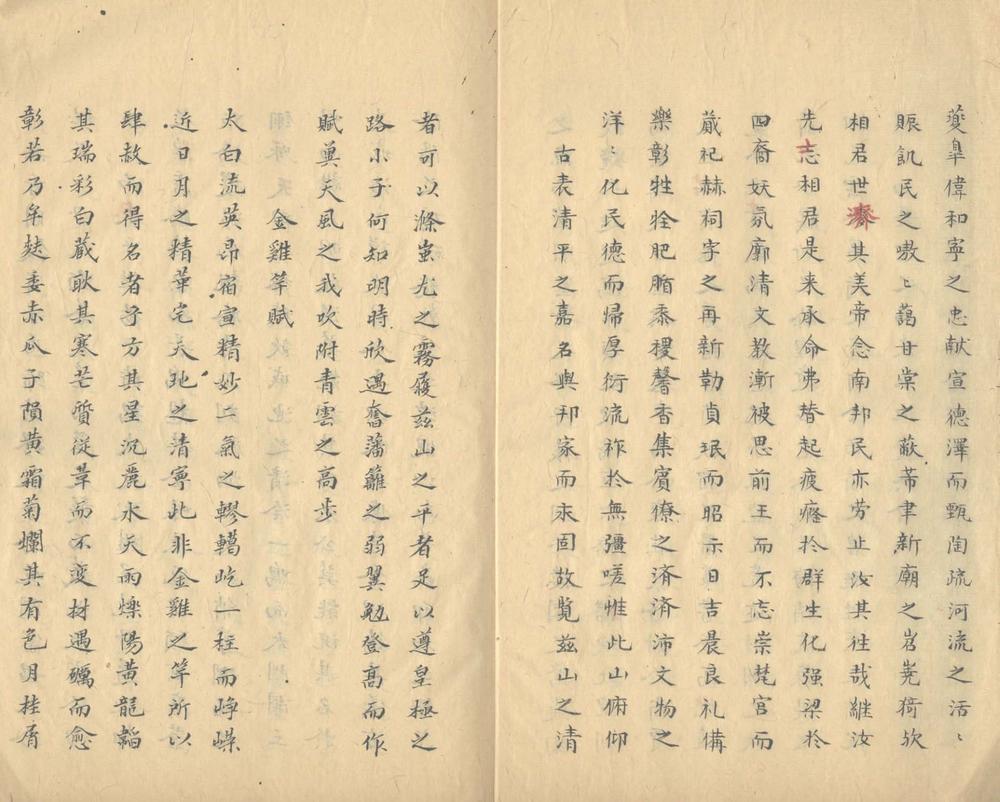 夔皐偉和寧之忠献宣德澤而甄陶疏河流之活〻
賑飢民之嗷〻藹甘棠之蔽芾聿新廟之岧嶤猗欤
相君世濟其美帝念南邦民亦劳止汝其徃哉継汝
先志相君是来承命弗替起疲癃扵群生化强梁扵
四裔妖氛廓清文教漸被思前王而不忘崇梵宫而
蕆祀赫祠宇之再新勒貞珉而昭示日吉晨良礼備
樂彰牲牷肥腯黍稷馨香集賓僚之済済沛文物之
洋〻化民德而帰厚衍流祚扵無彊嗟惟此山俯仰
古表清平之嘉名與邦家而永固故覧兹山之清
者可以滌蚩尤之霧履兹山之平者足以遵皇極之
路小子何知明時欣遇奮藩籬之弱翼勉登髙而作
賦兾天風之我吹附青雲之高步
金雞竿賦
太白流英昂宿宣精妙二氣之轇轕屹一柱而崢嶸
近日月之精華宅天地之清寧此非金雞之竿所以
肆赦而得名者乎方其星沉麗水天雨爍陽黄龍韜
其瑞彩白蔵耿其寒芒質従革而不变材遇礪而愈
彰若乃牟麩委赤瓜子隕黄霜菊爛其有色月桂屑